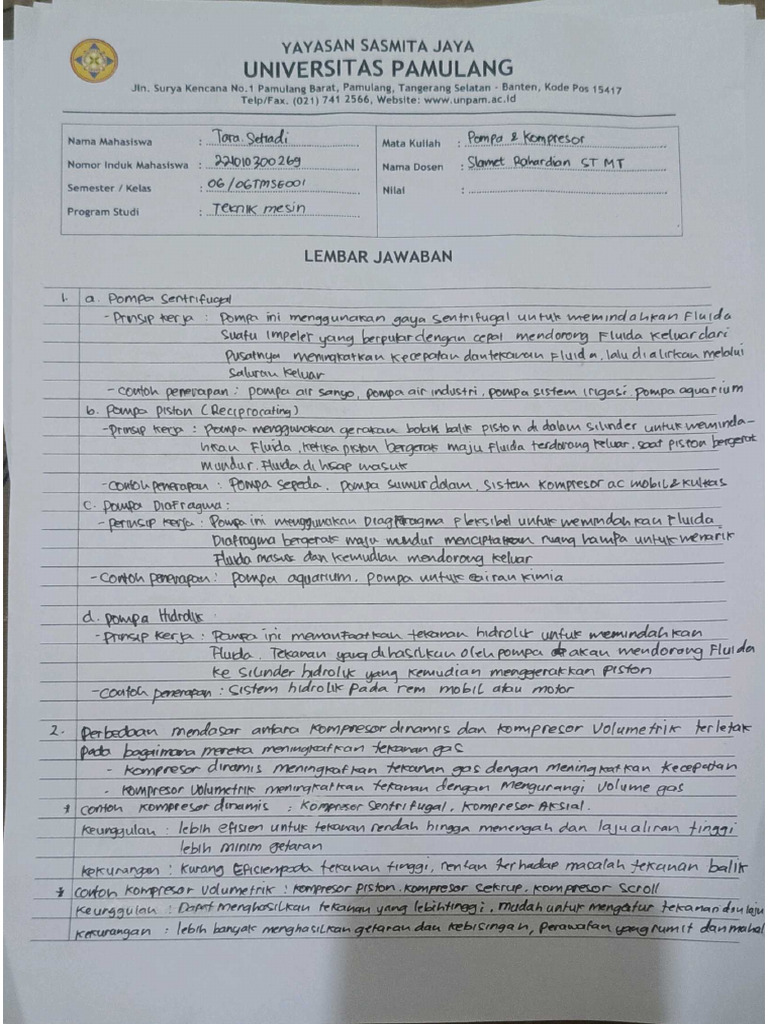 YAYASAN SASMITA JAYA
UNIVERSITAS PAMULANG
Jln. Surya Kencana No.1 Pamulang Barat, Pamulang, Tangerang Selatan - Banten, Kode Pos 15417
Telp/Fax. (021) 741 2566, Website: www.unpam.ac.id
Nama Mahasiswa : Tora Setiadi
Nomor Induk Mahasiswa : 221010300269
Semester / Kelas : 06/06TMSE001
Program Studi : Teknik mesin
Mata Kuliah : Pompa & Kompresor
Nama Dosen : Slamet Rahardian ST MT
Nilai :
LEMBAR JAWABAN
1. a. Pompa Sentrifugal
- Prinsip kerja : Pompa ini menggunakan gaya sentrifugal untuk memindahkan Fluida
Suatu Impeler yang berputar dengan cepat mendorong Fluida keluar dari
Pusatnya meningkatkan kecepatan dan tekanan Fluida, lalu di alirkan melalui
saluran keluar
- contoh penerapan : pompa air sanyo, pompa air industri, pompa sistem irigasi, pompa aquarium
b. Pompa piston (Reciprocating)
- prinsip kerja : Pompa menggunakan gerakan bolak balik piston di dalam silinder untuk meminda-
hkan Fluida, ketika piston bergerak maju Fluida terdorong keluar, saat piston bergerak
mundur, Fluida di hisap masuk
- contoh penerapan : Pompa sepeda, pompa sumur dalam, sistem kompresor ac mobil & kulkas
c. Pompa Diafragma :
- perinsip kerja : Pompa ini menggunakan Diagfragma Fleksibel untuk memindahkan Fluida
Diafragma bergerak maju mundur menciptakan ruang hampa untuk menarik
Fluida masuk dan kemudian mendorong keluar
- Contoh penerapan : pompa aquarium, pompa untuk cairan kimia
d. Pompa Hidrolik
- Prinsip Kerja : Pompa ini memanfaatkan tekanan hidrolik untuk memindahkan
Fluida. Tekanan yang di hasilkan oleh pompa akan mendorong Fluida
ke silinder hidrolik yang kemudian menggerakkan piston
- contoh penerapan : sistem hidrolik pada rem mobil atau motor
2. perbedaan mendasar antara kompresor dinamis dan kompresor volumetrik terletak
pada bagaimana mereka meningkatkan tekanan gas
- kompresor dinamis meningkatkan tekanan gas dengan meningkatkan kecepatan
- kompresor volumetrik meningkatkan tekanan dengan mengurangi volume gas
* contoh kompresor dinamis : kompresor sentrifugal, kompresor Aksial.
keunggulan : lebih efisien untuk tekanan rendah hingga menengah dan laju aliran tinggi
lebih minim getaran
kekurangan : kurang Efisien pada tekanan tinggi, rentan terhadap masalah tekanan balik
* contoh kompresor volumetrik : kompresor piston, kompresor sekrup, kompresor scroll
keunggulan : Dapat menghasilkan tekanan yang lebih tinggi, mudah untuk mengatur tekanan dan laju
kekurangan : lebih banyak menghasilkan getaran dan kebisingan, perawatan yang rumit dan mahal